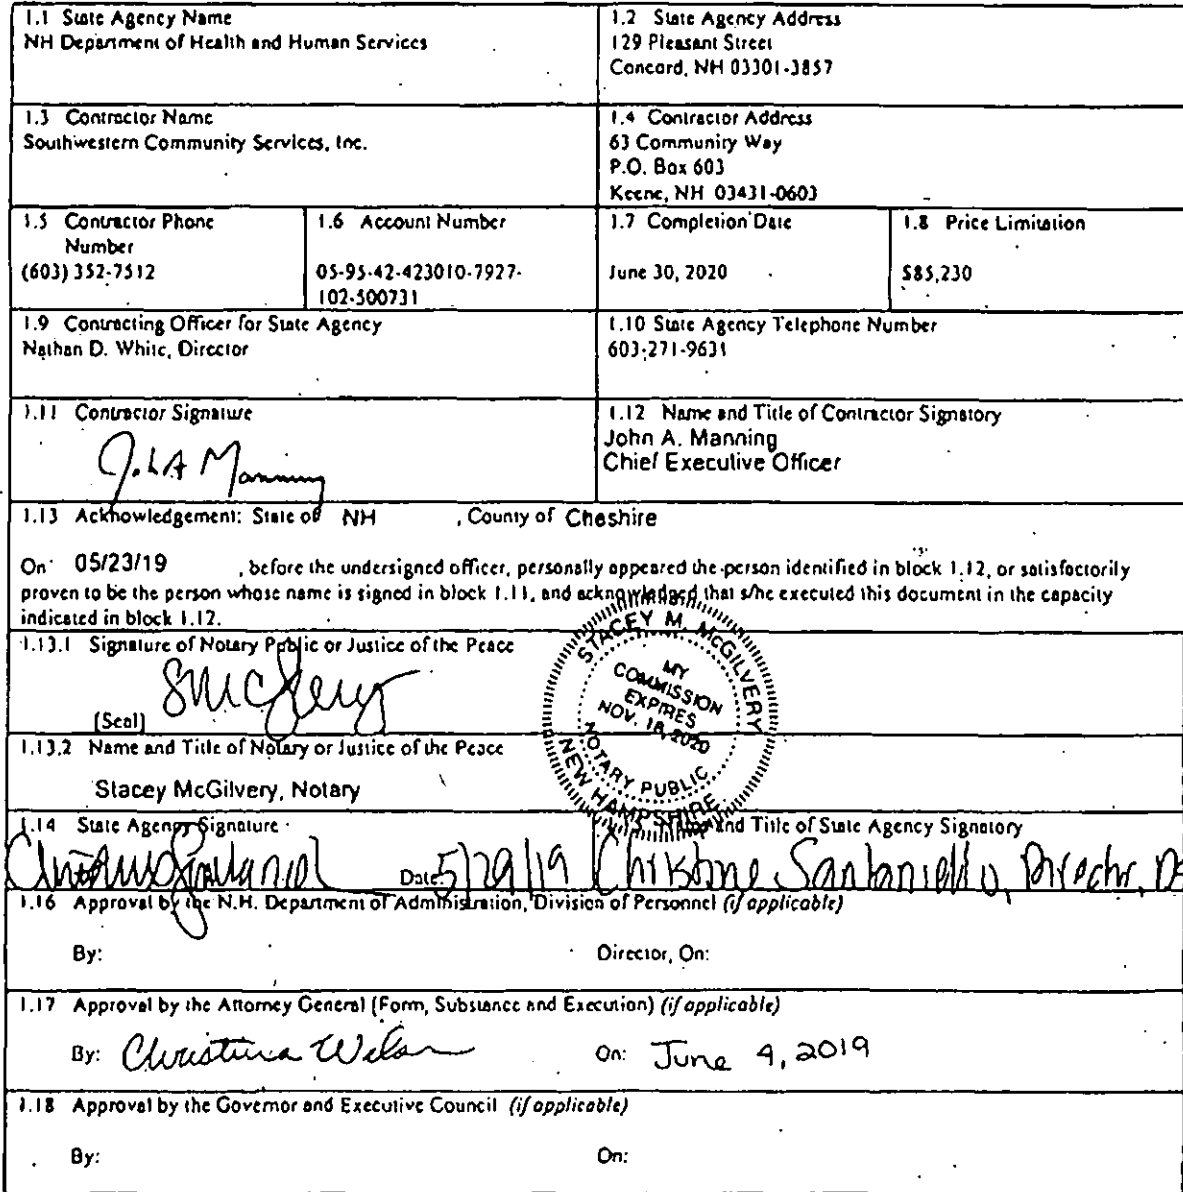 1.1 State Agency Name
NH Department of Health and Human Services
1.2 State Agency Address
129 Pleasant Street
Concord, NH 03301-3857
1.3 Contractor Name
Southwestern Community Services, Inc.
1.4 Contractor Address
63 Community Way
P.O. Box 603
Keene, NH 03431-0603
1.5 Contractor Phone
Number
(603) 352-7512
1.6 Account Number
05-95-42-423010-7927-
102-500731
1.7 Completion Date
June 30, 2020
1.8 Price Limitation
$85,230
1.9 Contracting Officer for State Agency
Nathan D. White, Director
1.10 State Agency Telephone Number
603-271-9631
1.11 Contractor Signature
John A Manning
1.12 Name and Title of Contractor Signatory
John A. Manning
Chief Executive Officer
1.13 Acknowledgement: State of NH , County of Cheshire
On 05/23/19 , before the undersigned officer, personally appeared the person identified in block 1.12, or satisfactorily
proven to be the person whose name is signed in block 1.11, and acknowledged that s/he executed this document in the capacity
indicated in block 1.12.
1.13.1 Signature of Notary Public or Justice of the Peace
[Seal]
STACEY M. McGILVERY
MY
COMMISSION
EXPIRES
NOV. 18, 2020
NOTARY PUBLIC
NEW HAMPSHIRE
1.13.2 Name and Title of Notary or Justice of the Peace
Stacey McGilvery, Notary
1.14 State Agency Signature
Date: 5/29/19
and Title of State Agency Signatory
Christine Santaniello, Director, DE
1.16 Approval by the N.H. Department of Administration, Division of Personnel (if applicable)
By: Director, On:
1.17 Approval by the Attorney General (Form, Substance and Execution) (if applicable)
By: Christina Wilson On: June 4, 2019
1.18 Approval by the Governor and Executive Council (if applicable)
By: On: